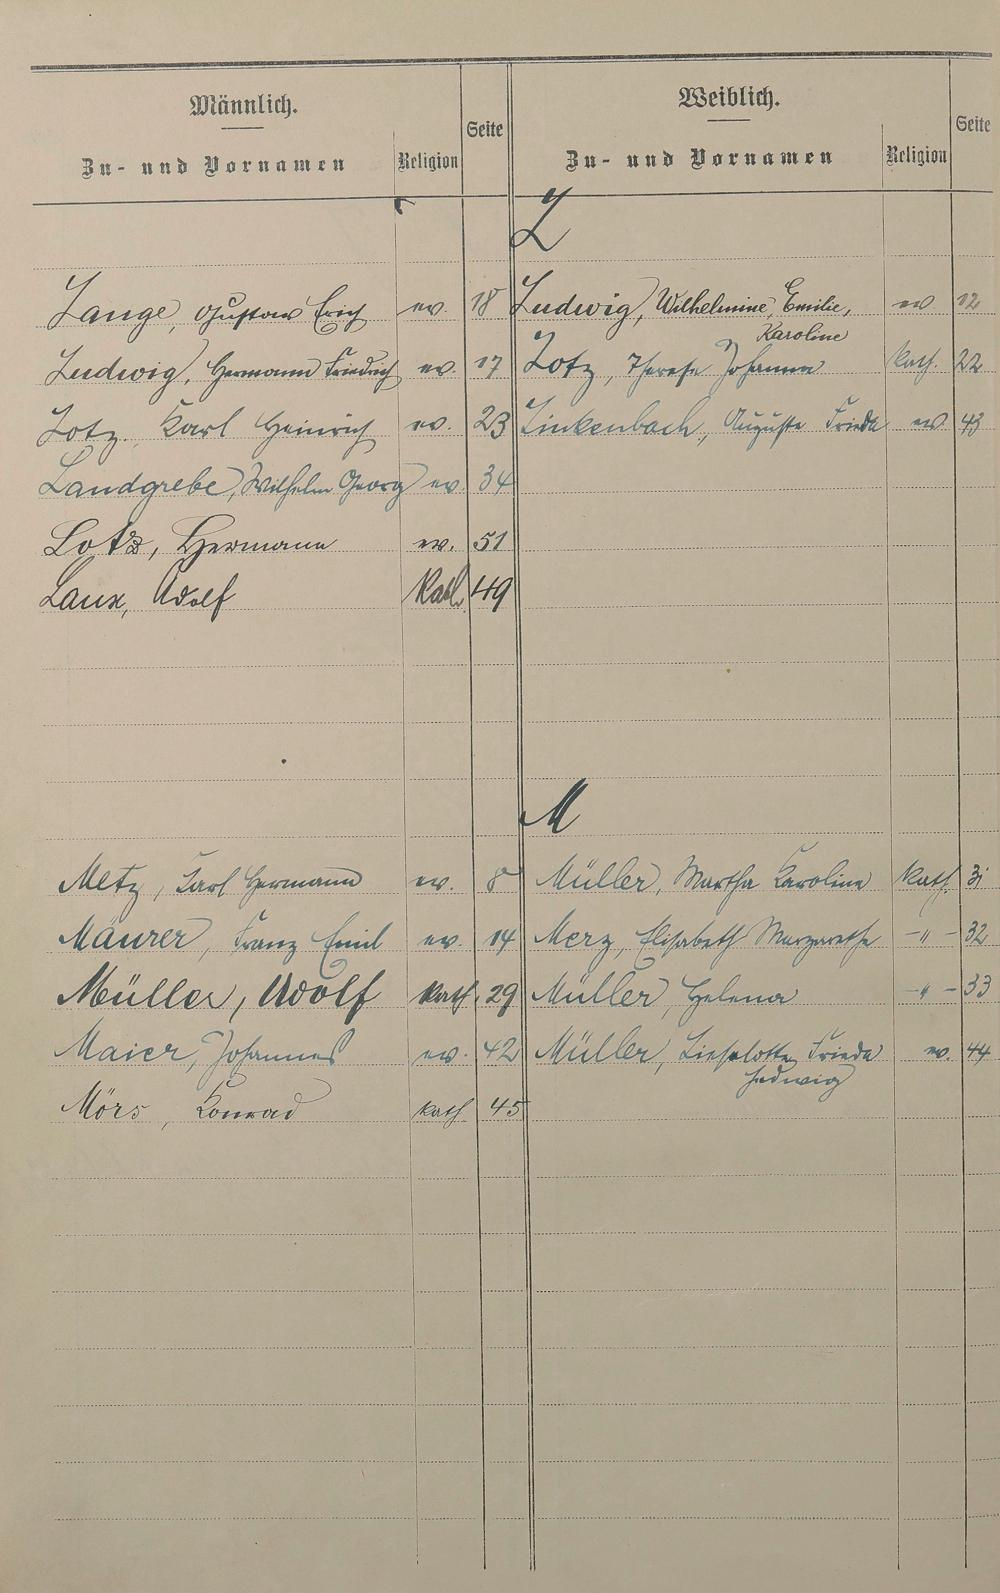 Männlich.
Zu- und Vornamen Religion Seite
Weiblich.
Zu- und Vornamen Religion Seite
L
Lange, Gustav Erich ev. 18
Ludwig, Wilhelmine, Emilie, ev 12
Karoline
Ludwig, Hermann Friedrich ev. 17
Lotz, Therese Johanna kath. 22
Lotz, Karl Heinrich ev. 23
Linkenbach, Auguste Frieda ev 43
Landgrebe, Wilhelm Georg ev. 34
Lotz, Hermann ev. 51
Laux, Adolf Kath. 49
M
Metz, Karl Hermann ev. 8
Müller, Martha Karoline Kath. 31
Mäurer, Franz Emil ev. 14
Merz, Elisabeth Margarethe -"- 32
Müller, Adolf kath. 29
Müller, Helena -"- 33
Maier, Johannes ev. 42
Müller, Lieselotte Frieda ev. 44
Hedwig
Mörs, Konrad kath. 45